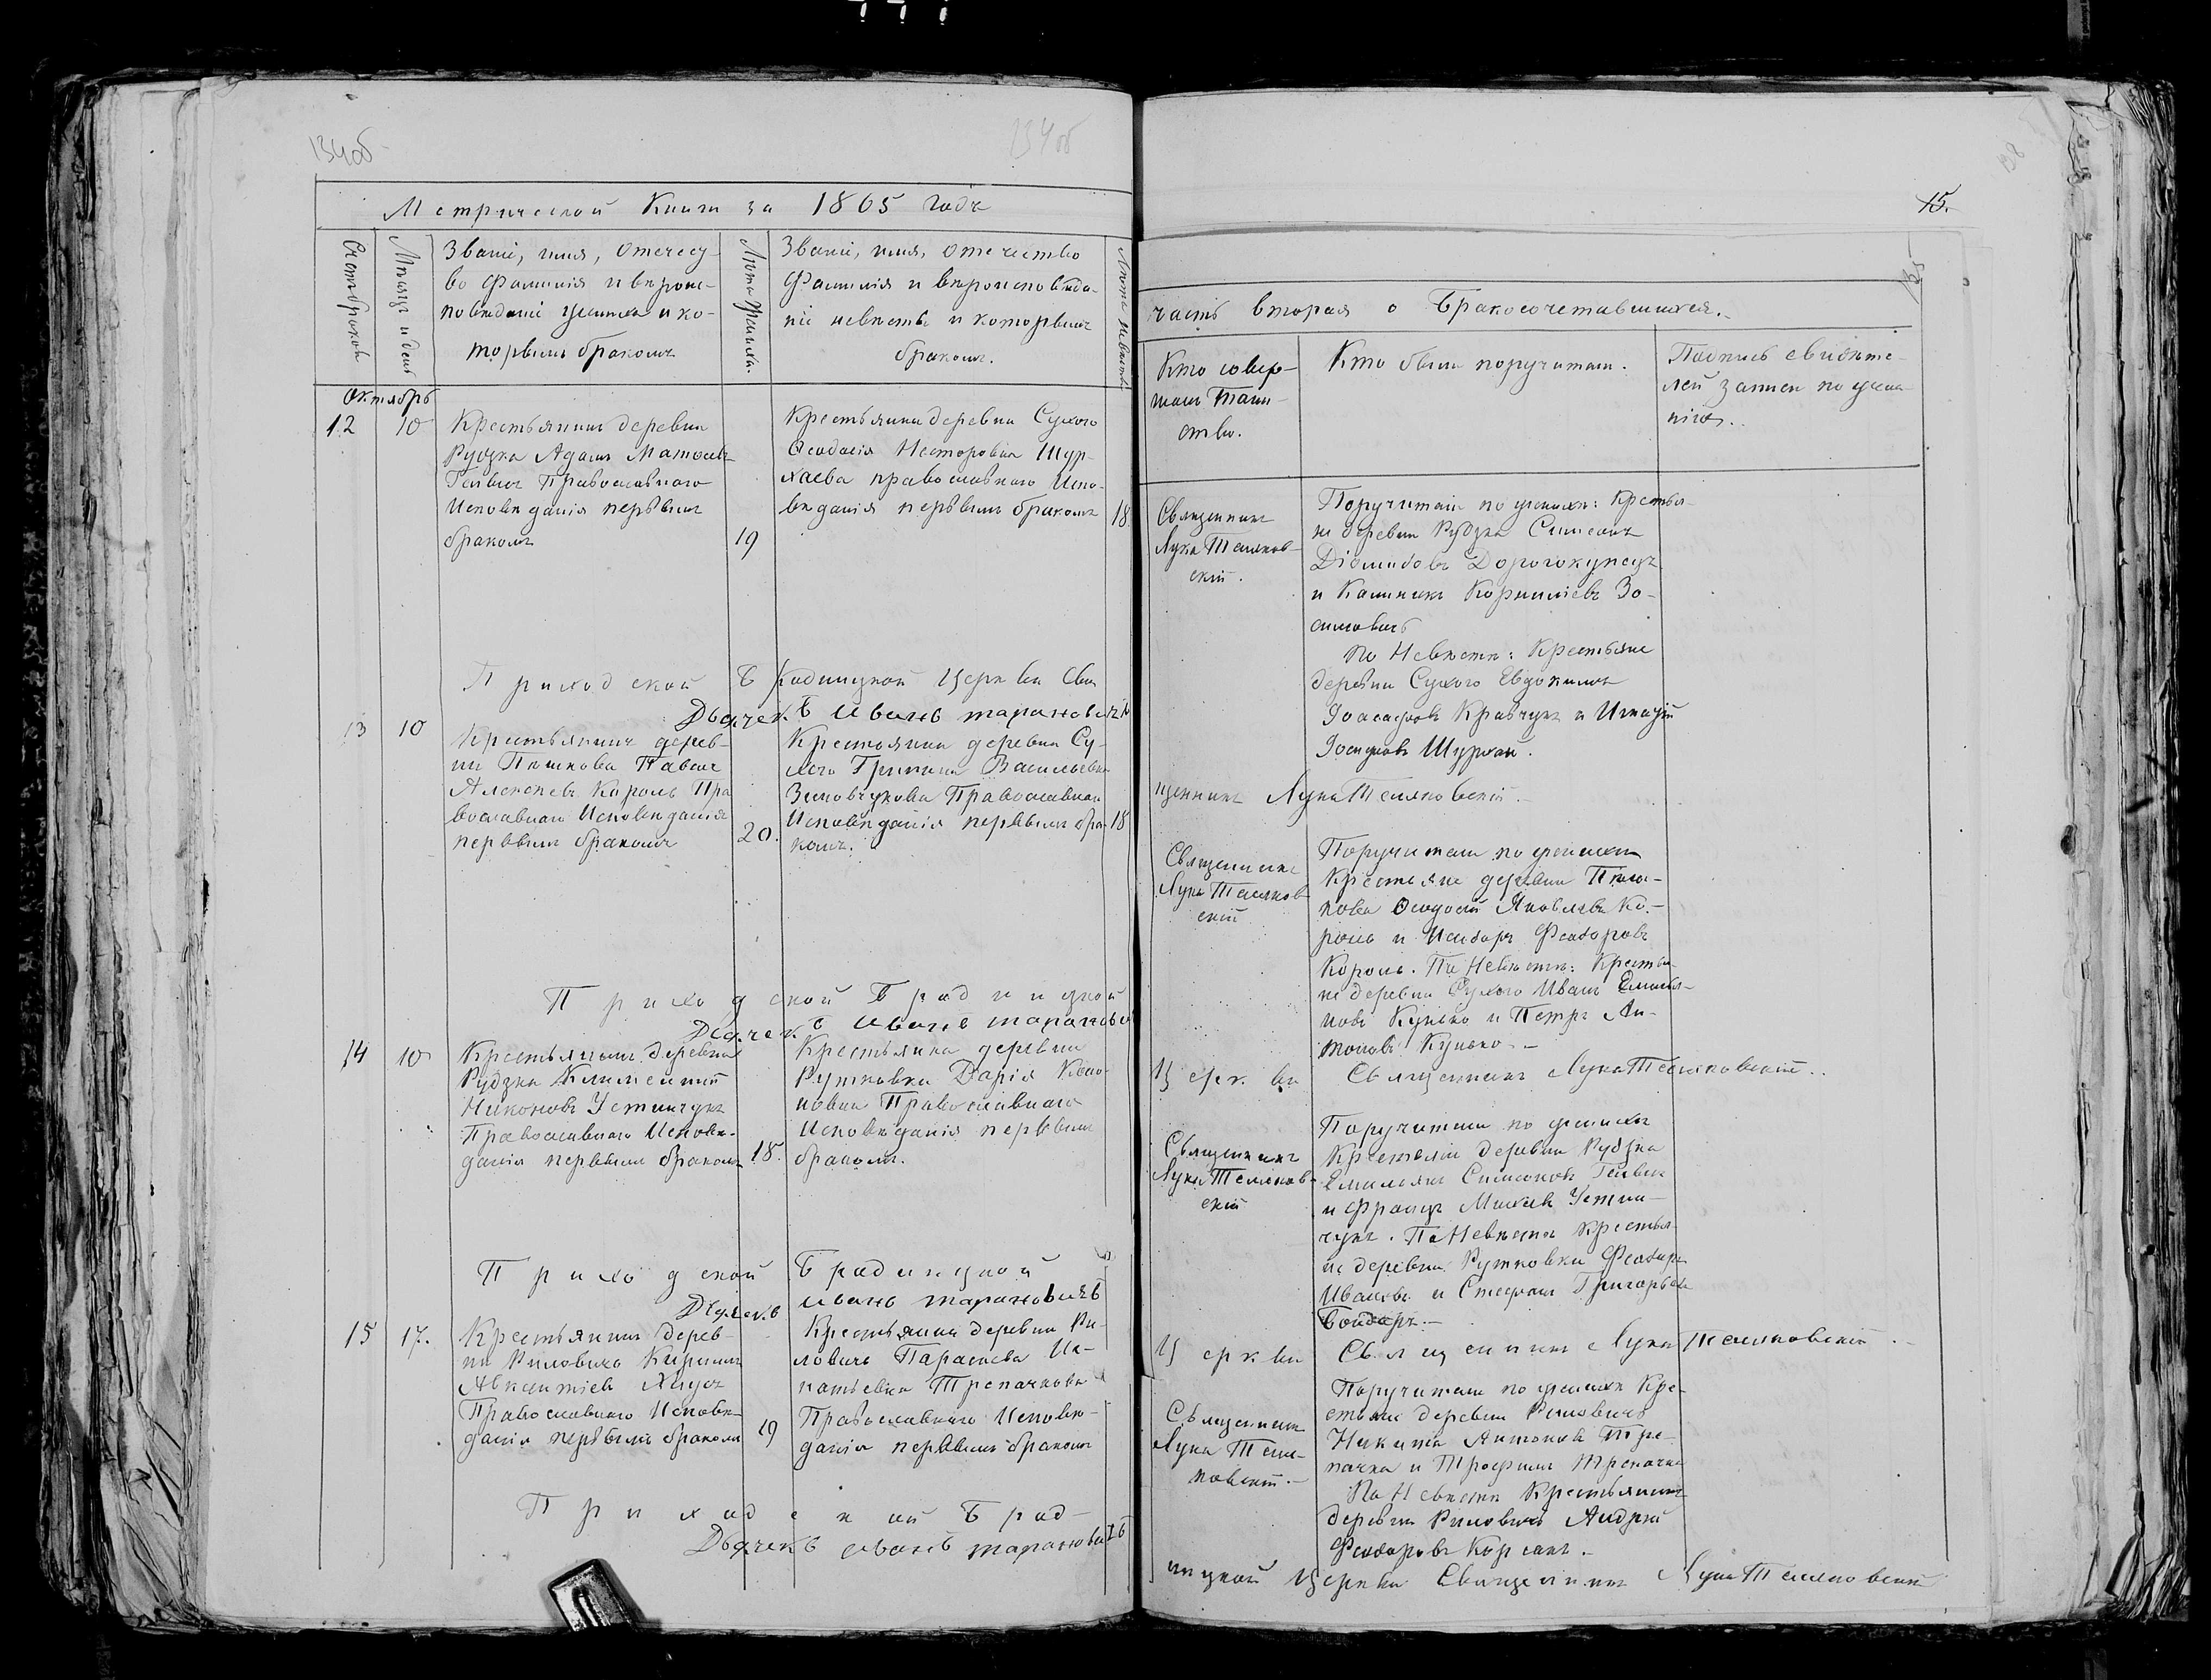 134об
134об
Метрической Книги за 1865 годъ
Счетъ браковъ
Мѣсяцъ и день
Званіе, имя, отечест-
во фамилія и вѣроис-
повѣданіе жениха и ко-
торымъ бракомъ
Лѣта жениха.
Званіе, имя, отечество
Фамилія и вѣроисповѣда-
ніе невѣсты и которымъ
бракомъ.
Лѣта невѣсты
Октябрь
12 10
Крестьянинъ деревни
Рудзка Адамъ Матѳеевъ
Православнаго
Исповѣданія первымъ
бракомъ
19
Крестьянка деревни Сухого
Ѳеодосія Несторовна Шур-
хаева православнаго Испо-
вѣданія первымъ бракомъ
18
Приходской Бродницкой Церкви Свя
Дьячекъ Иванъ Тарановичъ
13 10
Крестьянинъ дерев-
ни Пашкова Павелъ
Алексѣевъ Король Пра
вославнаго Исповѣданія
первымъ бракомъ
20.
Крестьянка деревни Су-
хого Васильевна
Зиновчукова Православнаго
Исповѣданія первымъ бра-
комъ.
18
Приходской Бродницкой
Дьячекъ Иванъ Тарановичъ
14 10
Крестьянинъ деревни
Рудзка Климентій
Никоновъ Устинчукъ
Православнаго Исповѣ-
данія первымъ бракомъ
18.
Крестьянка деревни
Рутковки Дарія
Православнаго
Исповѣданія первымъ
бракомъ.
Приходской Бродницкой
Дьячекъ Иванъ Тарановичъ
15 17.
Крестьянинъ дерев-
ни Риловичъ Кирилъ
Авксентіевъ
Православнаго Исповѣ-
данія первымъ бракомъ
19
Крестьянка деревни Ри-
ловичъ Параскева Иг-
натьевна Трепачкова
Православнаго Исповѣ-
данія первымъ бракомъ
Приходской Брод-
Дьячекъ Иванъ Тарановичъ
15.
135
часть вторая о Бракосочетавшихся.
Кто совер-
шалъ Таин-
ство.
Кто были поручители.
Подпись свидѣте-
лей записи по жела-
нію.
Священникъ
Лука Теляков-
скій.
Поручители по женихѣ: Крестья-
не деревни Рудзка Симеонъ
Діомидовъ Дорогокупецъ
и Каллиникъ Корниліевъ Зо-
симовичъ
По Невѣстѣ: Крестьяне
деревни Сухого Евдокимъ
Іоасафовъ Кравчукъ и Игнатій
Іосифовъ Шурхай.
щенникъ Лука Теляковскій.
Священникъ
Лука Теляков-
скій
Поручители по женихѣ
Крестьяне деревни Паш-
кова Ѳеодосій Яковлевъ Ко-
роль и Исидоръ Феодоровъ
Король. По Невѣстѣ: Крестья-
не деревни Сухого Иванъ Емилья-
новъ Кунько и Петръ Ан-
тоновъ Кунько.-
Церкви Священникъ Лука Теляковскій.
Священникъ
Лука Теляков-
скій
Поручители по женихѣ
Крестьяне деревни Рудзка
Емиліянъ Симеоновъ
и Францъ Устин-
чукъ. По Невѣстѣ Крестья-
не деревни Рутковки Феодоръ
Ивановъ и Стефанъ Григорьевъ
Бондарь.-
Церкви Священникъ Лука Теляковскій.-
Священникъ
Лука Теля-
ковскій.-
Поручители по женихѣ Кре-
стьяне деревни Риловичъ
Никита Антоновъ Тре-
пачка и Трофимъ Трепачка
По Невѣстѣ Крестьянинъ
деревни Риловичъ Андрей
Феодоровъ Корсакъ.-
ницкой Церкви Священникъ Лука Теляковскій